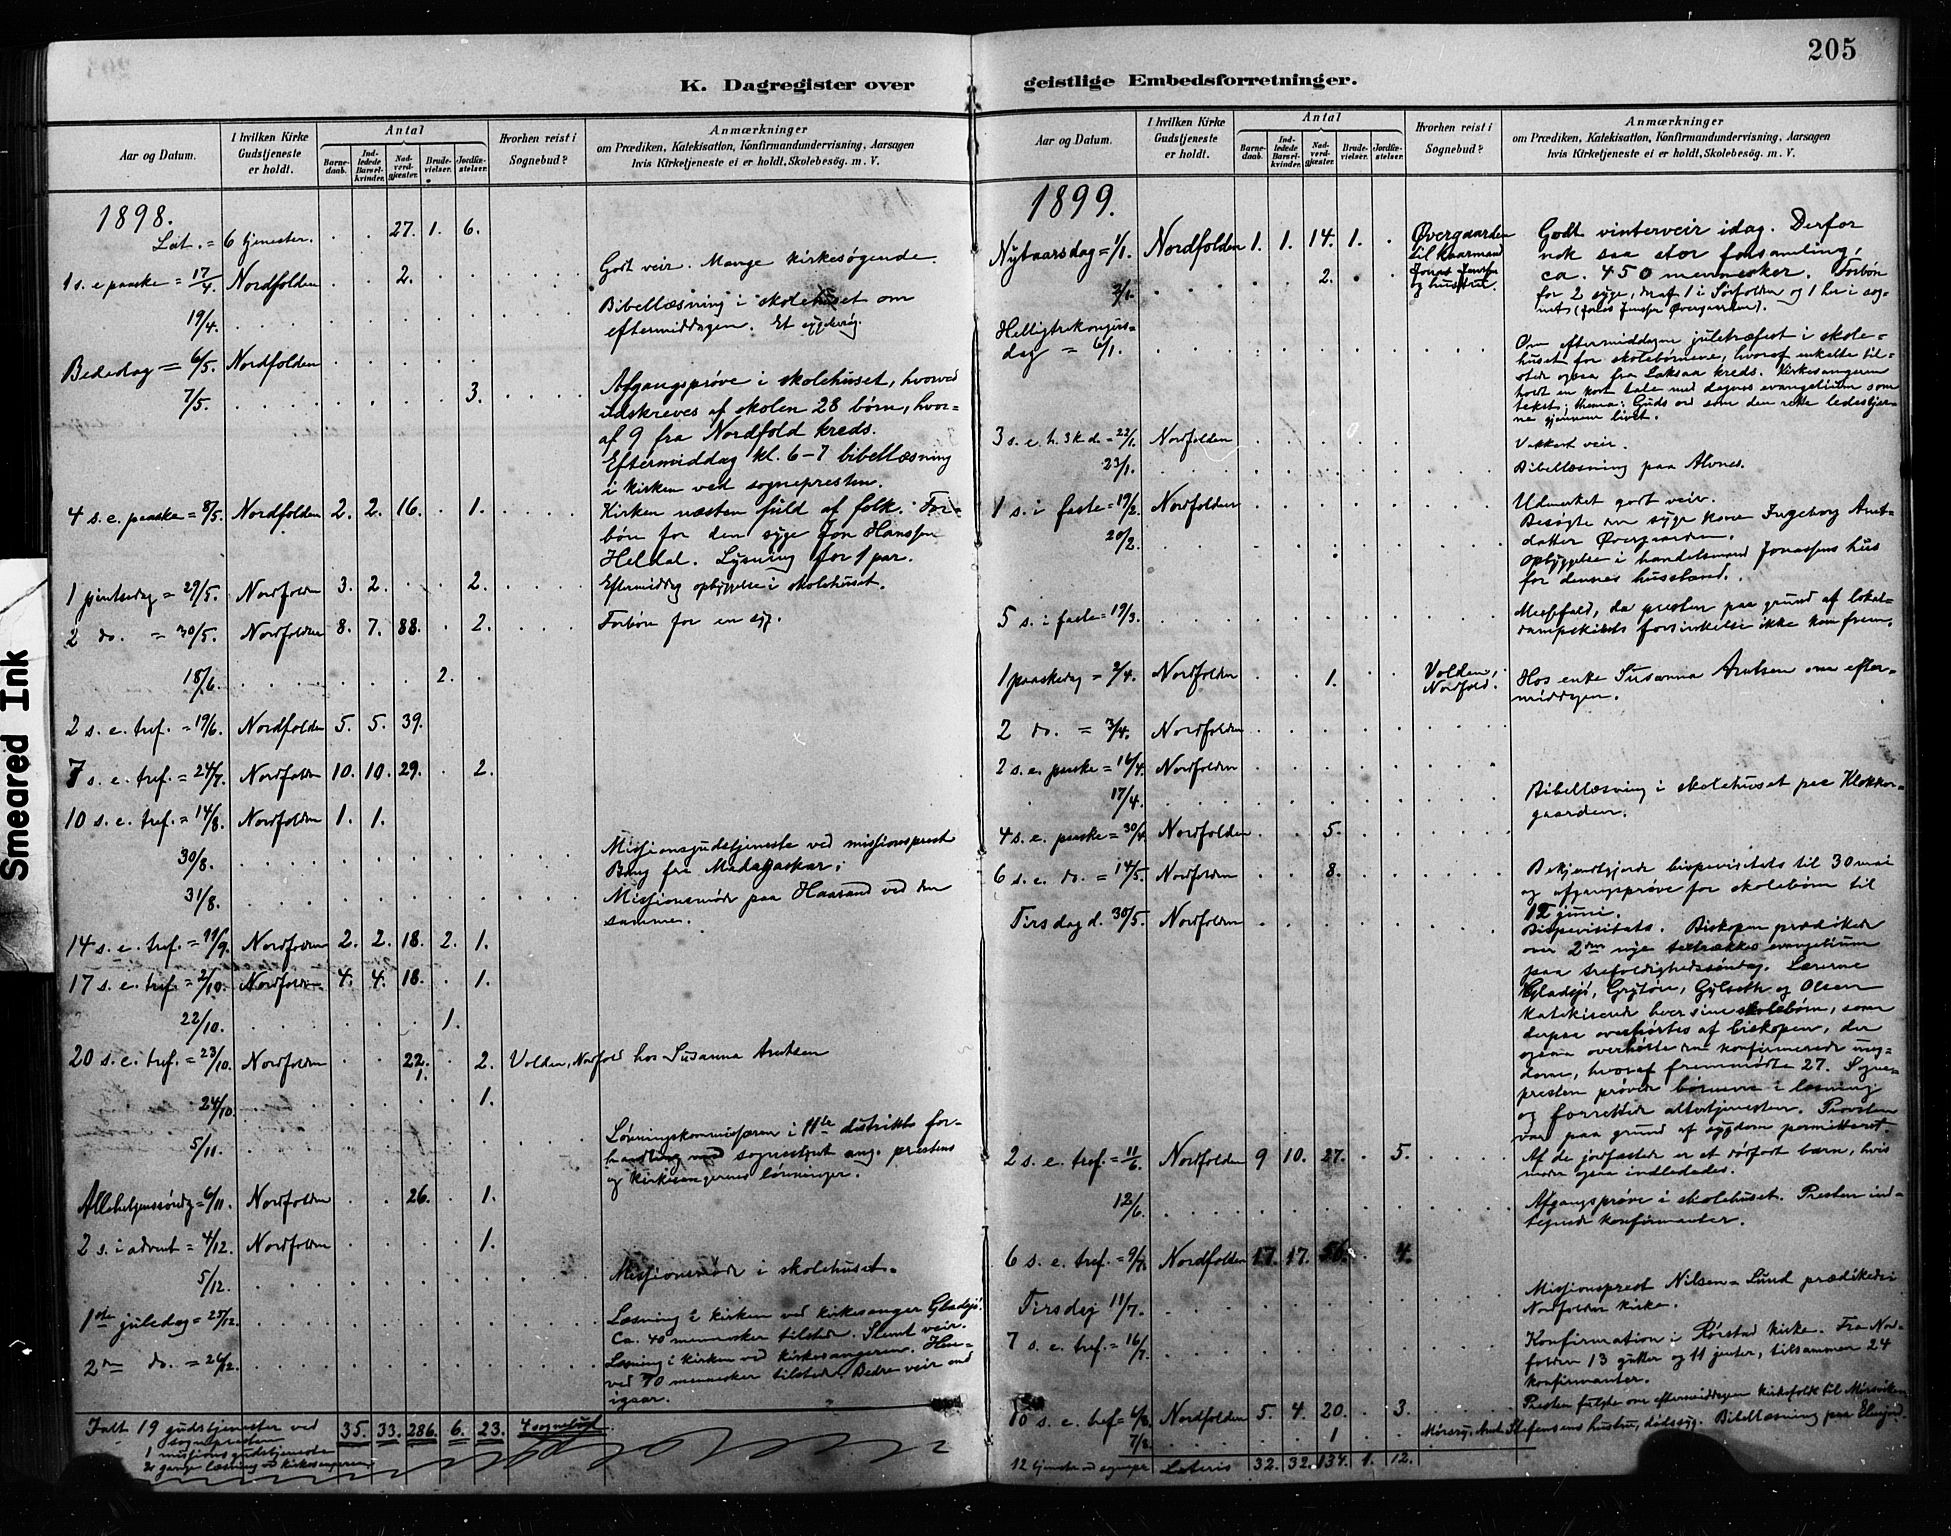 205
K. Dagregister over
geistlige Embedsforretninger.
Aar og Datum.
I hvilken Kirke Gudstjeneste er holdt.
Antal
Barne-daab.
Ind-ledede Barsel-kvinder.
Nad-verd-gjæster.
Brude-vielser.
Jordfæ-stelser.
Hvorhen reist i Sognebud?
Anmærkninger
om Prædiken, Katekisation, Konfirmandundervisning, Aarsagen
hvis Kirketjeneste ei er holdt, Skolebesøg. m. V.
1898.
Lat. = 6 tjenester. 27. 1. 6.
1 s. e paaske = 17/4. Nordfolden 2. Godt veir. Mange kirkesøgende
19/4. Bibellæsning i skolehuset om
eftermiddagen. Et sygebesøg.
Bededag = 6/5. Nordfolden
7/5. 3. Afgangsprøve i skolehuset, hvorved
udskreves af skolen 28 børn, hvor-
af 9 fra Nordfold kreds.
Eftermiddag kl. 6-7 bibellæsning
i kirken ved sognepresten.
4 s. e. paaske = 8/5. Nordfolden 2. 2. 16. 1. Kirken næsten fuld af folk. For-
bøn for den syge Jon Hanssen
Heldal. Lysning for 1 par.
1 pintsedag = 29/5. Nordfolden 3. 2. 2. Eftermiddag opbyggelse i skolehuset.
2 do. = 30/5. Nordfolden 8. 7. 88. 2. Forbøn for en syg.
18/6. 2.
2 s. e. tref. = 19/6. Nordfolden 5. 5. 39.
7 s. e. tref. = 24/7. Nordfolden 10. 10. 29. 2.
10 s. e. tref. = 14/8. Nordfolden 1. 1.
30/8. Missionsgudstjeneste ved missionsprest
Bang fra Madagaskar.
31/8. Missionsmøde paa Haasand ved den
samme.
14 s. e. tref. = 11/9. Nordfolden 2. 2. 18. 2. 1.
17 s. e. tref. = 2/10. Nordfolden 4. 4. 18. 1.
22/10. 1.
20 s. e. tref. = 23/10. Nordfolden 22. 2. Volden, Nordfold hos Susanna Arntsen
1.
24/10. 1.
5/11. Lønningskommissæren i 11te distrikts for-
handling med sognestyret ang. prestens
og kirkesangerens lønninger.
Allehelgenssøndag = 6/11. Nordfolden 26. 1.
2 s. i advent = 4/12. Nordfolden 1.
5/12. Missionsmøde i skolehuset.
1ste juledag = 25/12. Læsning i kirken ved kirkesanger Gladsjø.
Ca. 40 mennesker tilstede. Slemt veir.
2den do. = 26/12. Læsning i kirken ved kirkesangeren. Hen-
ved 70 mennesker tilstede. Bedre veir end
igaar.
Ialt 19 gudstjenester ved 35. 33. 286. 6. 23. 4 sognebud
sognepresten
1 missionsgudstjeneste
2 gange læsning ved kirkesangeren
Aar og Datum.
I hvilken Kirke Gudstjeneste er holdt.
Antal
Barne-daab.
Ind-ledede Barsel-kvinder.
Nad-verd-gjæster.
Brude-vielser.
Jordfæ-stelser.
Hvorhen reist i Sognebud?
Anmærkninger
om Prædiken, Katekisation, Konfirmandundervisning, Aarsagen
hvis Kirketjeneste ei er holdt, Skolebesøg. m. V.
1899.
Nytaarsdag = 1/1. Nordfolden 1. 1. 14. 1. Øvergaarden
til kaarmand
Jonas Jenssen
og hustru.
Godt vinterveir idag. Derfor
nok saa stor forsamling,
ca. 450 mennesker. Forbøn
for 2 syge, deraf 1 i Sørfolden og 1 her i sog-
net (Jonas Jenssen Øvergaarden).
2/1. 2.
Helligtrekongers-
dag = 6/1. Om eftermiddagen juletræfest i skole-
huset for skolebørnene, hvoraf enkelte til-
stede ogsaa fra Laksaa kreds. Kirkesangeren
holdt en kort tale med dagens evangelium som
tekst; thema: Guds ord som den rette ledestjer-
ne gjennem livet.
3 s. e. h. 3 k. d. = 22/1. Nordfolden Vakkert veir.
23/1. Bibellæsning paa Alvnes.
1 s. i faste = 19/2. Nordfolden Udmerket godt veir.
20/2. Besøgte den syge kone Ingeborg Arnt-
datter Øvergaarden.
Opbyggelse i handelsmand Jonassens hus
for dennes husstand.
5 s. i faste = 19/3. Messefald, da presten paa grund af lokal-
dampskibets forsinkelse ikke kom frem.
1 paaskedag = 2/4. Nordfolden 1. Volden, Nordfold. Hos enke Susanna Arntsen om efter-
middagen.
2 do. = 3/4. Nordfolden
2 s. e. paaske = 16/4. Nordfolden
17/4. Bibellæsning i skolehuset paa Klokker-
gaarden.
4 s. e. paaske = 30/4. Nordfolden 5.
6 s. e. do. = 14/5. Nordfolden 8. Bekjendtgjorde bispevisitats til 30 mai
og afgangsprøve for skolebørn til
12 juni.
Tirsdag d. 30/5. Nordfolden Bispevisitats. Biskopen prædikede
over 2den nye textrækkes evangelium
paa trefoldighedssøndag. Lærerne
Gladsjø, Grytøn, Gylseth og Olsen
katekiserede hver sine skolebørn, som
derpaa overhørtes af biskopen, der
ogsaa overhørte den konfirmerede ung-
dom, hvoraf fremmødte 27. Sogne-
presten prøvede børnene i læsning
og forrettede altertjenesten. Provsten
var paa grund af sygdom permitteret
2 s. e. tref. = 11/6. Nordfolden 9 10. 27. 5. Af de jordfæstede er et dødfødt barn, hvis
moder ogsaa indlededes.
12/6. Afgangsprøve i skolehuset. Presten ind-
tegnede konfirmanter.
6 s. e. tref. = 9/7. Nordfolden 17. 17. 56. 4.
Tirsdag 11/7. Missionsprest Nilsen-Lund prædikede i
Nordfolden kirke.
7 s. e. tref. = 16/7. Konfirmation i Rørstad kirke. Fra Nord-
folden 13 gutter og 11 jenter, tilsammen 24
konfirmanter.
10 s. e. tref = 6/8. Nordfolden 5. 4. 20. 3. Presten fulgte om eftermiddagen kirkefolk til Mørsviken
7/8. 1 Mørsry, Arnt Steffensens hustru, dødssyg. Bibellæsning paa
12 tjenester ved sognepr. Lateris 32. 32. 134. 1. 12.
Smeared Ink